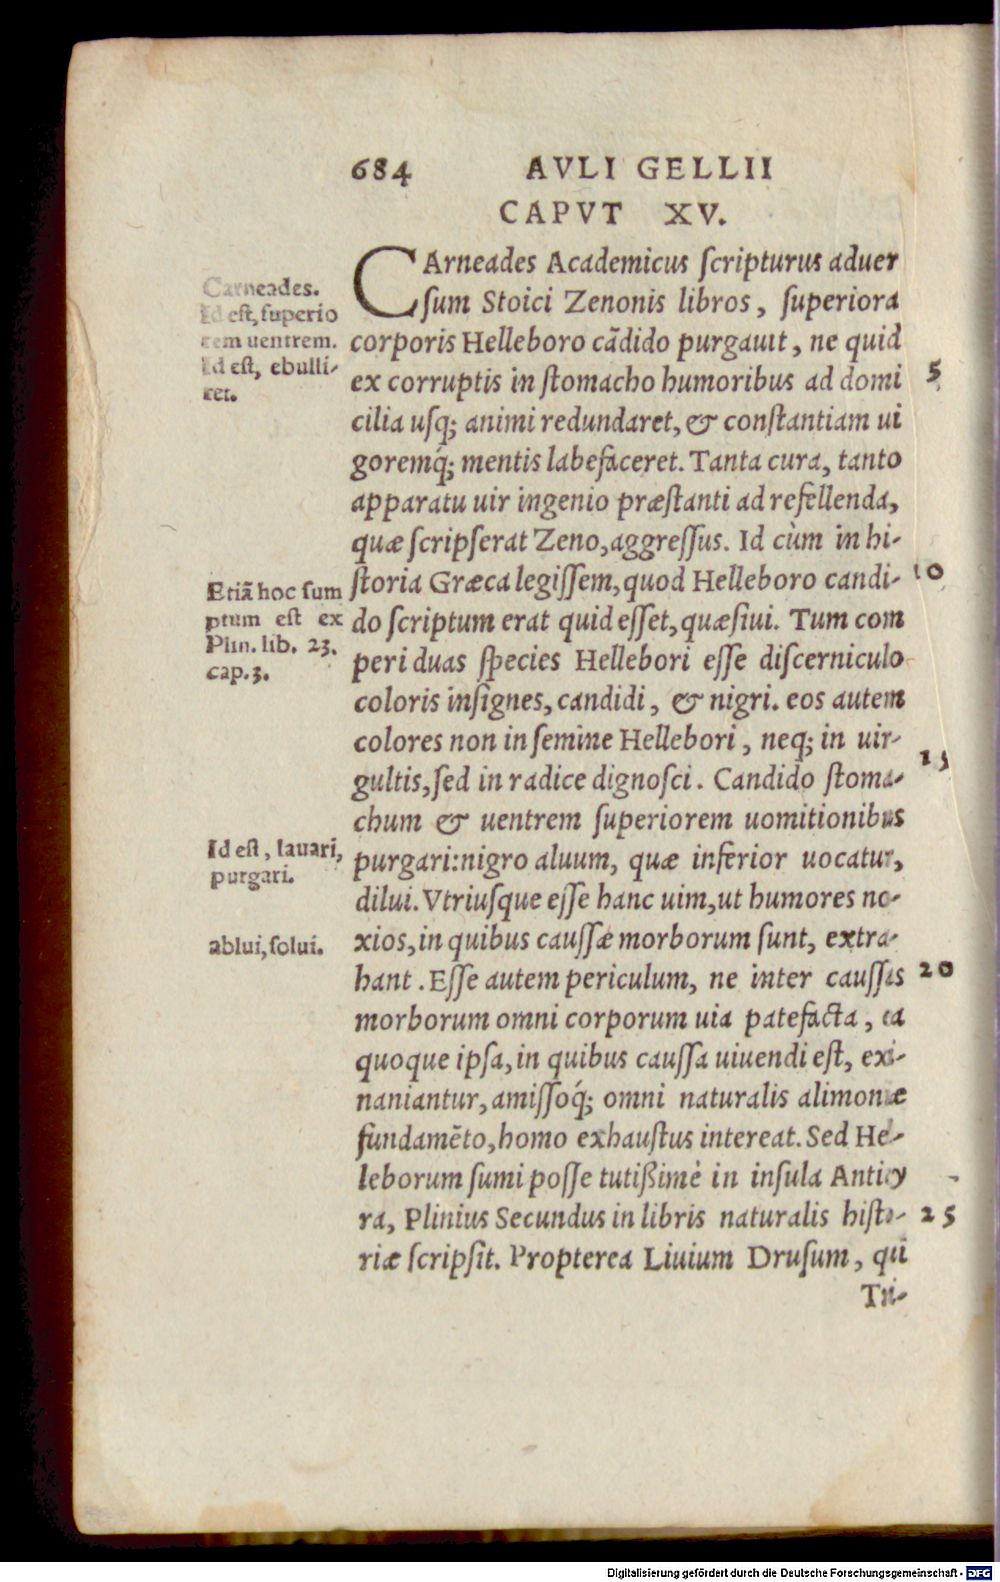 684 AVLI GELLII
CAPVT XV.
CArneades Academicus ſcripturus aduer
ſum Stoici Zenonis libros, ſuperiora
corporis Helleboro cãdido purgauit, ne quid
ex corruptis in ſtomacho humoribus ad domi
cilia uſq; animi redundaret, & conſtantiam ui
goremq́; mentis labefaceret. Tanta cura, tanto
apparatu uir ingenio præſtanti ad refellenda,
quæ ſcripſerat Zeno, aggreſſus. Id cùm in hi-
ſtoria Græca legiſſem, quod Helleboro candi-
do ſcriptum erat quid eſſet, quæſiui. Tum com
peri duas ſpecies Hellebori eſſe diſcerniculo
coloris inſignes, candidi, & nigri. eos autem
colores non in ſemine Hellebori, neq; in uir-
gultis, ſed in radice dignoſci. Candido ſtoma-
chum & uentrem ſuperiorem uomitionibus
purgari: nigro aluum, quæ inferior uocatur,
dilui. Vtriuſque eſſe hanc uim, ut humores no-
xios, in quibus cauſſæ morborum ſunt, extra-
hant. Eſſe autem periculum, ne inter cauſſas
morborum omni corporum uia patefacta, ea
quoque ipſa, in quibus cauſſa uiuendi eſt, exi-
naniantur, amiſſoq́; omni naturalis alimoniæ
fundamẽto, homo exhauſtus intereat. Sed He-
leborum ſumi poſſe tutißimè in inſula Anticy
ra, Plinius Secundus in libris naturalis hiſto-
riæ ſcripſit. Propterea Liuium Druſum, qui
Tri-
Carneades.
Id eſt, ſuperio
rem uentrem.
Id eſt, ebulli-
ret.
Etiã hoc ſum
ptum eſt ex
Plin. lib. 23.
cap. 3.
Id eſt, lauari,
purgari.
ablui, ſolui.
5
10
15
20
25
Digitalisierung gefördert durch die Deutsche Forschungsgemeinschaft - DFG